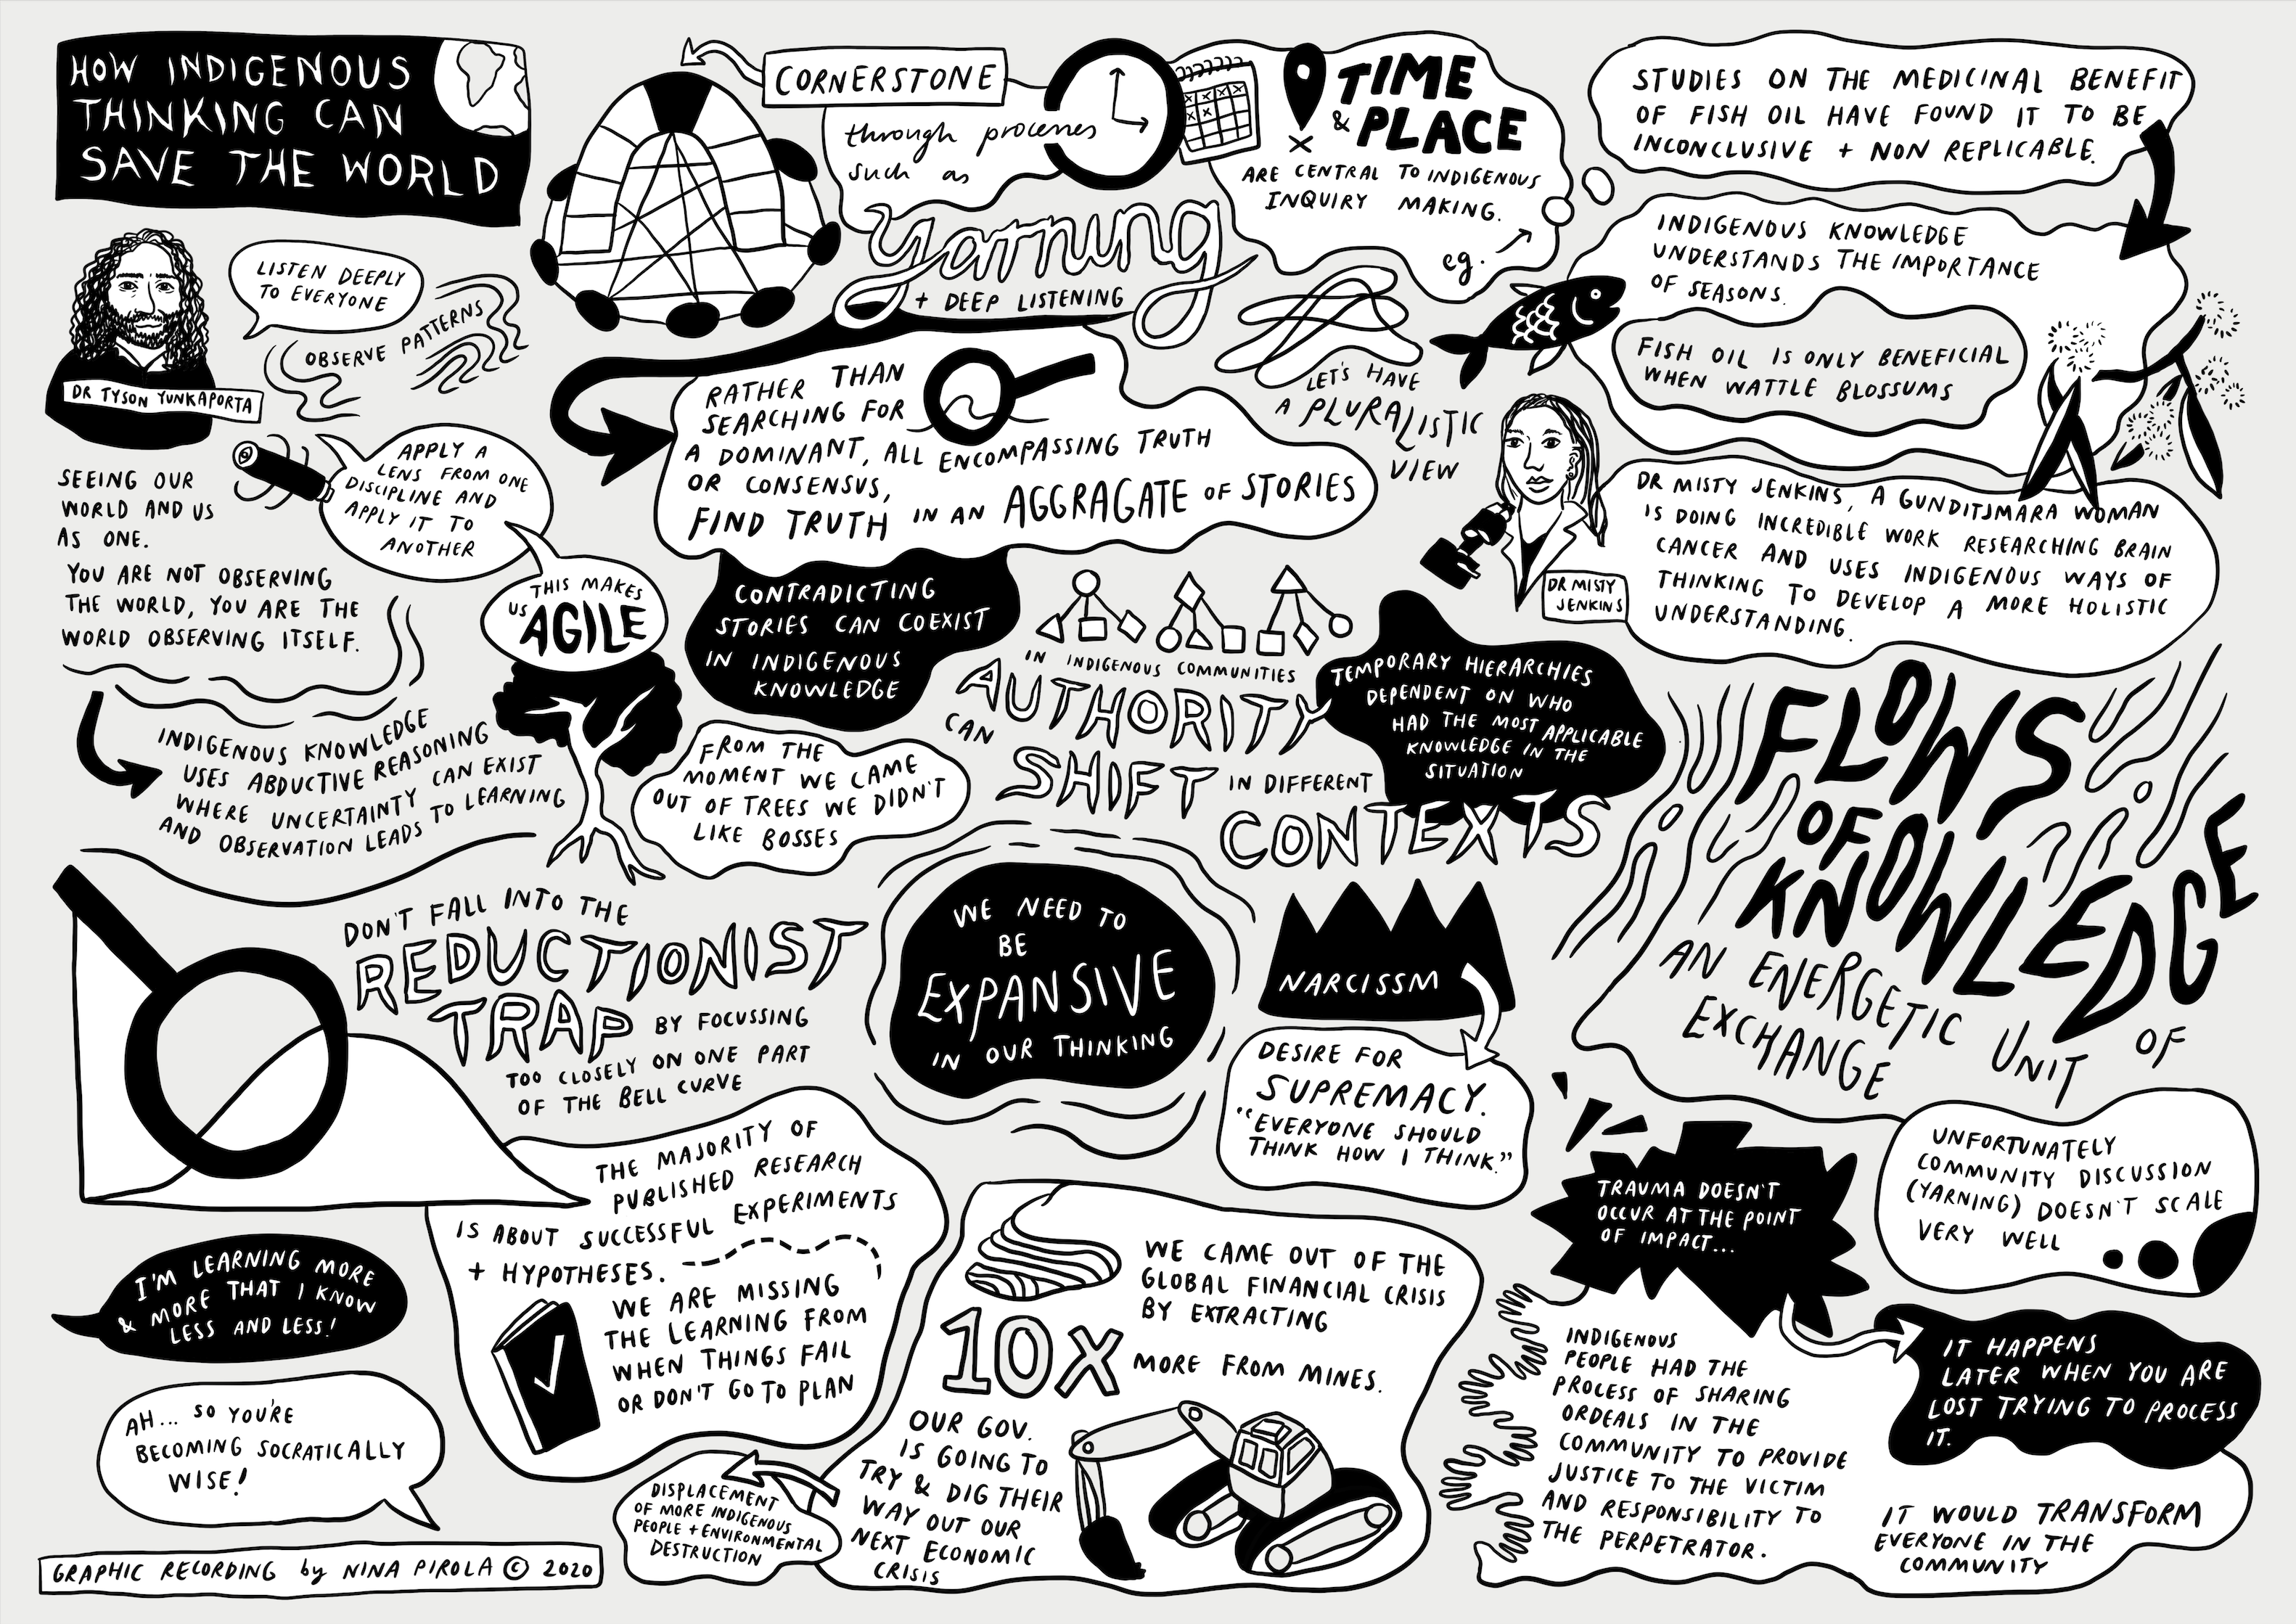 HOW INDIGENOUS
THINKING CAN
SAVE THE WORLD
DR TYSON YUNKAPORTA
LISTEN DEEPLY
TO EVERYONE
OBSERVE PATTERNS
APPLY A
LENS FROM ONE
DISCIPLINE AND
APPLY IT TO
ANOTHER
THIS MAKES
US AGILE
SEEING OUR
WORLD AND US
AS ONE.
YOU ARE NOT OBSERVING
THE WORLD, YOU ARE THE
WORLD OBSERVING ITSELF.
INDIGENOUS KNOWLEDGE
USES ABDUCTIVE REASONING
WHERE UNCERTAINTY CAN EXIST
AND OBSERVATION LEADS TO LEARNING
CORNERSTONE
through processes
such as
yarning
+ DEEP LISTENING
TIME
& PLACE
ARE CENTRAL TO INDIGENOUS
INQUIRY MAKING.
eg.
STUDIES ON THE MEDICINAL BENEFIT
OF FISH OIL HAVE FOUND IT TO BE
INCONCLUSIVE + NON REPLICABLE.
INDIGENOUS KNOWLEDGE
UNDERSTANDS THE IMPORTANCE
OF SEASONS.
FISH OIL IS ONLY BENEFICIAL
WHEN WATTLE BLOSSUMS
RATHER THAN
SEARCHING FOR
A DOMINANT, ALL ENCOMPASSING TRUTH
OR CONSENSUS,
FIND TRUTH IN AN AGGRAGATE OF STORIES
LET'S HAVE
A PLURALISTIC
VIEW
DR MISTY
JENKINS
DR MISTY JENKINS, A GUNDITJMARA WOMAN
IS DOING INCREDIBLE WORK RESEARCHING BRAIN
CANCER AND USES INDIGENOUS WAYS OF
THINKING TO DEVELOP A MORE HOLISTIC
UNDERSTANDING.
CONTRADICTING
STORIES CAN COEXIST
IN INDIGENOUS
KNOWLEDGE
FROM THE
MOMENT WE CAME
OUT OF TREES WE DIDN'T
LIKE BOSSES
IN INDIGENOUS COMMUNITIES
AUTHORITY
CAN
SHIFT IN DIFFERENT
CONTEXTS
TEMPORARY HIERARCHIES
DEPENDENT ON WHO
HAD THE MOST APPLICABLE
KNOWLEDGE IN THE
SITUATION
FLOWS
OF
KNOWLEDGE
AN ENERGETIC UNIT OF
EXCHANGE
DON'T FALL INTO THE
REDUCTIONIST
TRAP BY FOCUSSING
TOO CLOSELY ON ONE PART
OF THE BELL CURVE
WE NEED TO
BE
EXPANSIVE
IN OUR THINKING
NARCISSM
DESIRE FOR
SUPREMACY.
"EVERYONE SHOULD
THINK HOW I THINK."
THE MAJORITY OF
PUBLISHED RESEARCH
IS ABOUT SUCCESSFUL EXPERIMENTS
+ HYPOTHESES.
WE ARE MISSING
THE LEARNING FROM
WHEN THINGS FAIL
OR DON'T GO TO PLAN
I'M LEARNING MORE
& MORE THAT I KNOW
LESS AND LESS!
AH... SO YOU'RE
BECOMING SOCRATICALLY
WISE!
WE CAME OUT OF THE
GLOBAL FINANCIAL CRISIS
BY EXTRACTING
10X MORE FROM MINES.
OUR GOV.
IS GOING TO
TRY & DIG THEIR
WAY OUT OUR
NEXT ECONOMIC
CRISIS
DISPLACEMENT
OF MORE INDIGENOUS
PEOPLE + ENVIRONMENTAL
DESTRUCTION
UNFORTUNATELY
COMMUNITY DISCUSSION
(YARNING) DOESN'T SCALE
VERY WELL
TRAUMA DOESN'T
OCCUR AT THE POINT
OF IMPACT...
IT HAPPENS
LATER WHEN YOU ARE
LOST TRYING TO PROCESS
IT.
INDIGENOUS
PEOPLE HAD THE
PROCESS OF SHARING
ORDEALS IN THE
COMMUNITY TO PROVIDE
JUSTICE TO THE VICTIM
AND RESPONSIBILITY TO
THE PERPETRATOR.
IT WOULD TRANSFORM
EVERYONE IN THE
COMMUNITY
GRAPHIC RECORDING by NINA PIROLA © 2020